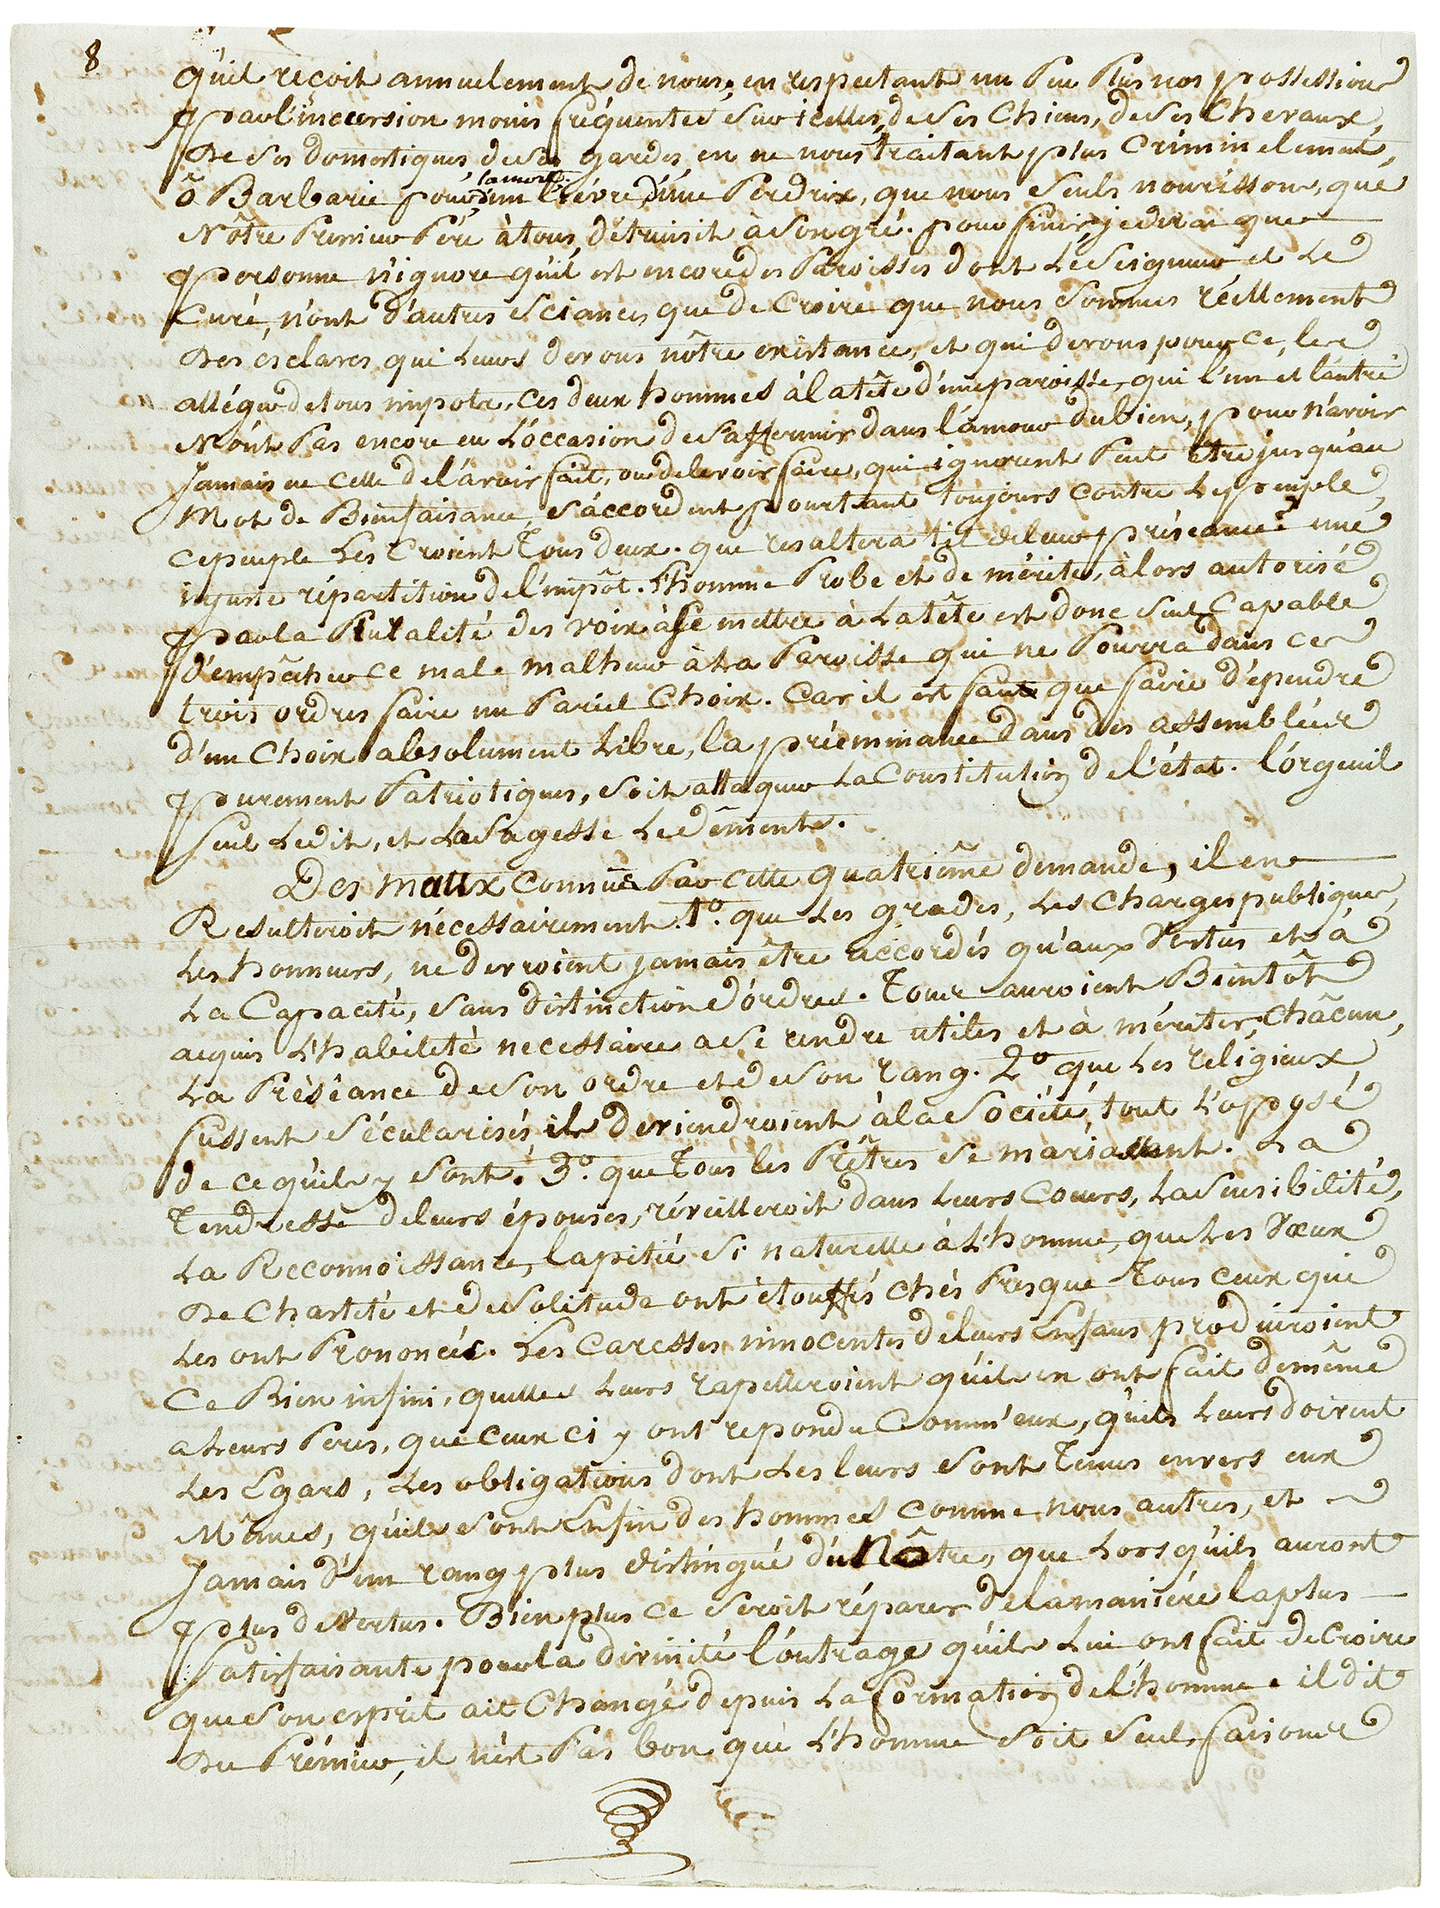 8
qu'il reçoit annuelement de nous, en respectant un Peu Plus nos possessions
par l'incursion moins fréquentes sur icelles, de ses Chiens, de ses Chevaux,
De ses domestiques, de ses gardes, en ne nous traitant plus Criminelement,
ô Barbarie pour la mort d'un Lièvre d'une Perdrix, que nous Seuls nourissons, que
Nôtre Premier Pére à tous, détruisit à son gré. pour finir, je dirai que
personne n'ignore qu'il est encore des Paroisses dont Le Seigneur et Le
Curé, n'ont d'autres Sciances que de Croire que nous Sommes réellement
Des esclaves, qui Leurs devons nôtre existance, et qui devons pour ce, les
alléger de tous impots. Ces deux hommes à la tête d'une paroisse, qui l'un et l'autre
N'ont Pas encore eu L'occasion de S'affermir dans l'amour du bien, pour n'avoir
Jamais eu Celle de l'avoir fait, ou de le voir faire, qui ignorent Peut être jusqu'au
Mot de Bienfaisance, S'accordent pourtant toujours contre Le peuple,
ce peuple Les Croient Tous deux. que resultera t'il de leur préseance? une
injuste répartition de l'impôt. L'homme Probe et de mérite, à lors autorisé
par la Pluralité des voix à se mettre à La tête est donc seul Capable
d'empâcher ce mal. malheur à La Paroisse qui ne Pourra dans ces
trois ordres faire un Pareil Choix. Car il est faux que faire d'épendre
d'un Choix absolument Libre, la préeminance dans des assemblées
purement Patriotiques, soit attaquer La Constitution de l'état. l'orgeuil
seul Le dit, et La Sagesse Le dément.
Des maux connus Par cette quatrième demande, il en
Resulteroit nécessairement 1°. que Les grades, Les Charges publiques,
Les honneurs, ne devroient jamais être accordés qu'aux Vertus et à
La Capacité, sans distinction d'ordres. Tous auroient Beintôt
acquis L'habileté necessaire a se rendre utiles et à mériter, Châcun,
La Préséance de Son ordre et de Son rang. 2° que Les religieux
fussent Sécularisés ils deviendroient à la Société, tout L'oposé
de ce qu'ils y Sont. 3°. que Tous les Prêtres Se mariassent. La
Tendresse de leurs épouses, réveilleroit dans Leurs Coeurs, La Sensibilité,
La Reconnoissance, la pitié Si naturelle à L'homme, que Les Voeux
De Chasteté et de Solitude ont étouffés chés Presque Tous ceux qui
Les ont Prononcés. Les Caresses innocentes de leurs Enfans produiroient
Ce Bien infini, qu'elles Leurs rapelleroient qu'ils en ont fait de même
a Leurs Peres, que Ceux ci y ont repondu Comm'eux, qu'ils Leurs doivent
Les Egars, Les obligations dont Les leurs Sont Tenus envers eux
Mêmes, qu'ils sont Enfin des hommes comme nous autres, et
Jamais d'un rang plus distingué du Nôtre, que Lors qu'ils auront
plus de Vertus. Bien plus ce seroit réparer de la manière la plus
Satisfaisante pour la divinité l'outrage qu'ils Lui ont fait de Croire
que Son esprit ait Changé depuis La formation de l'homme. il dit
Du Prémier, il n'est Pas bon que L'homme Soit Seul, faisons